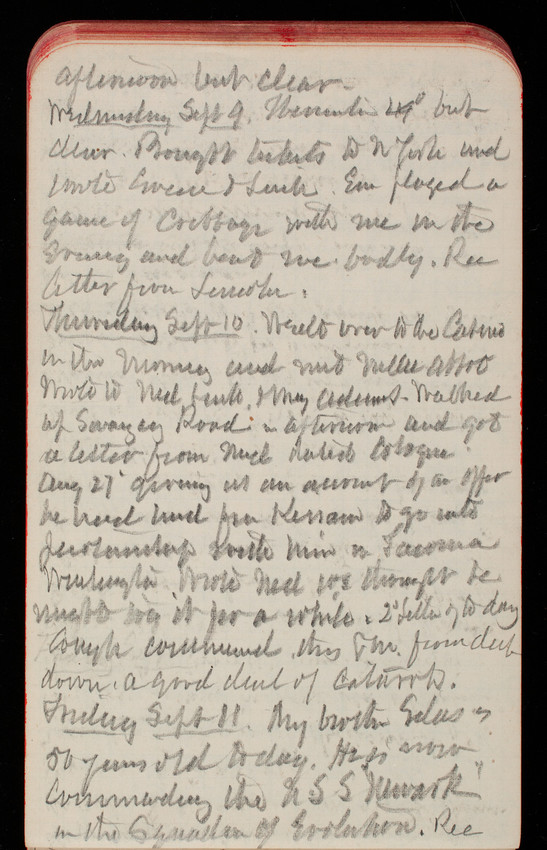 afternoon but clear.
Wednesday Sept 9. Thermometer 49° but
clear. Bought tickets to N York and
wrote Gwenie & Leslie. Em played a
game of Cribbage with me in the
evening and beat me badly. Rec
letter from Lincoln.
Thursday Sept 10. Went over to the Casino
in the morning and met Nellie Abbot
Wrote to Ned and May Walked
up Road in afternoon and got
a letter from Ned dated Cologne
Aug 27 giving us an account of an offer
he had had from to go into
partnership with him in Tacoma
Washington Wrote Ned we thought he
might try it for a while. 2d letter of to day
Cough commenced this from
down. a good deal of Catarrh.
Friday Sept 11. My brother Silas is
50 years old today. He is now
Commanding the U S S "Newark"
in the Squadron of Evolution. Rec